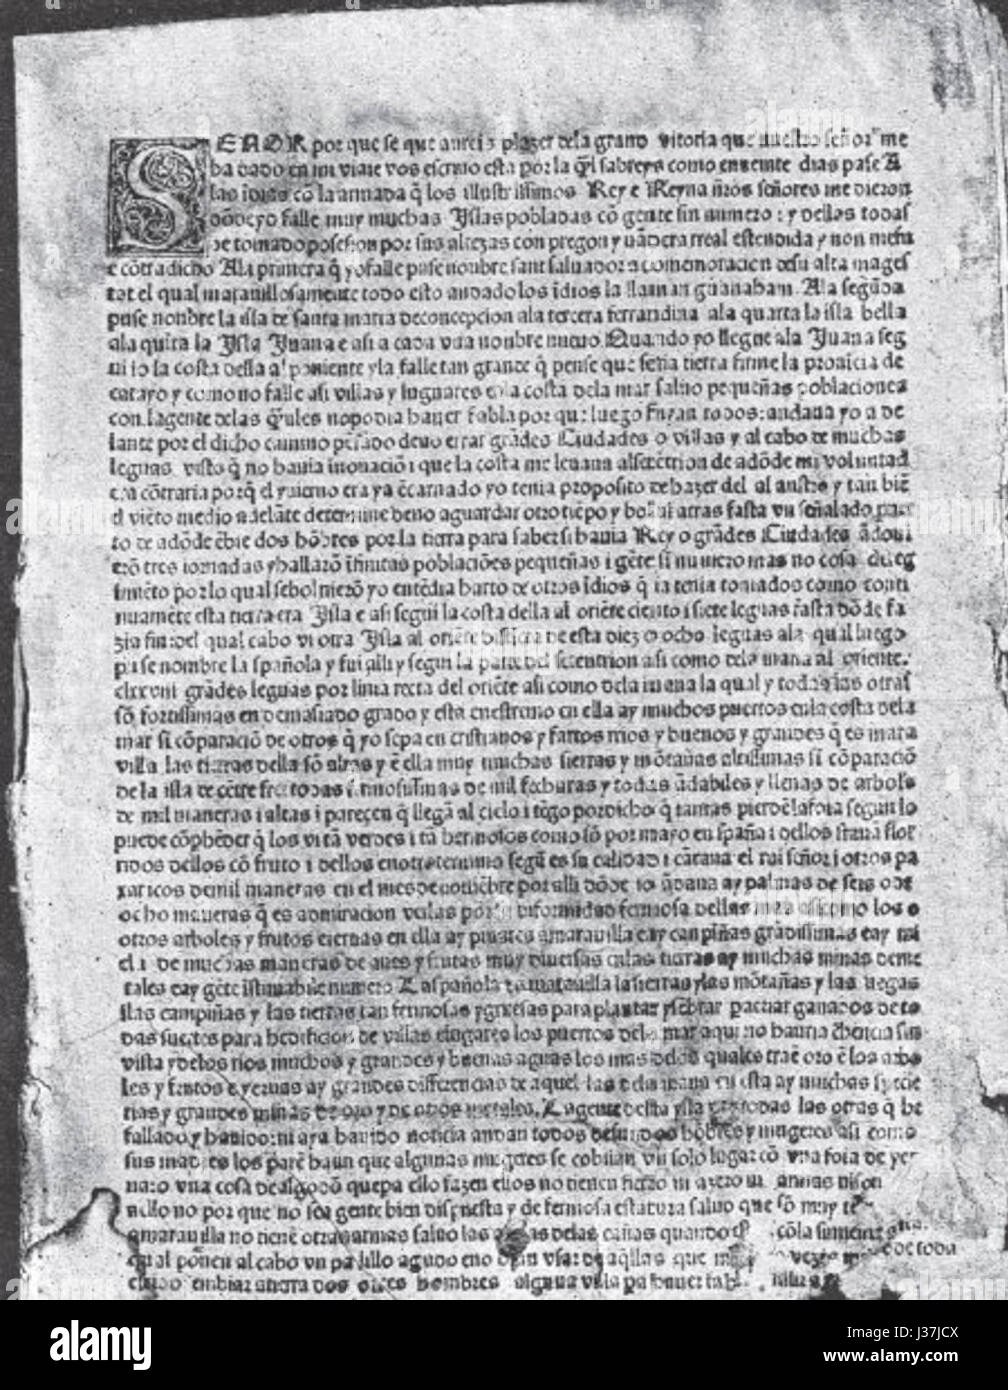 SEÑOR por que se que aureis plazer dela grand vitoria que nuestro señor me
ha dado en mi viaie vos escriuo esta por la q̃l sabreys como enueinte dias pase A
las īdias cō la armada q̃ los illustrissimos Rey e Reyna ñros señores me dieron
dōde yo falle muy muchas Islas pobladas cō gente sin numero : y dellas todas
he tomado posesion por sus altezas con pregon y uādera rreal estendida y non mefu
e cōtradicho Ala primera q̃ yofalle puse nonbre sant saluador a comemoracion desu alta mages
tat el qual marauillosamente todo esto andado los īdios la llaman guanaham. Ala segūda
puse nonbre la isla de santa maria deconcepcion ala tercera ferrandina ala quarta la isla bella
ala quita la Isla Juana e asi a cada vna nonbre nueuo. Quando yo llegue ala Juana seg
ui io la costa della al poniente yla falle tan grande q̃ pense que seria tierra firme la prouicia de
catayo y como no falle asi villas y luguares enla costa dela mar saluo pequeñas poblaciones
con lagente delas q̃les nopodia hauer fabla por que luego fuyan todos: andaua yo a de
lante por el dicho camino pēsado deno errar grādes Ciudades o villas y al cabo de muchas
leguas visto q̃ no hauia inouaciō i que la costa me leuaua alsetētrion de adōde mi voluntad
era cōtraria porq̃ el yuierno era ya ēcarnado yo tenia proposito dehazer del al austro y tan biē
el viēto medio adelāte determine deno aguardar otro tiēpo y bolui atras fasta vn señalado puer
to de adōde ēbie dos hōbres por la tierra para saber si hauia Rey o grādes Ciudades ādoui
erō tres iornadas yhallarō īfinitas poblaciōes pequeñas i gēte sī numero mas no cosa dereg
imiēto por lo qual sebolnierō yo entēdia harto de otros īdios q̃ ia tenia tomados como conti
nuamēte esta tierra era Isla e asi segui la costa della al oriēte ciento i siete leguas fasta dōde fa
zia fin: del qual cabo vi otra Isla al oriēte distīcta de esta diez o ocho leguas ala qual luego
puse nombre la spañola y fui alli y segui la parte del setentrion asi como dela iuana al oriente.
clxxviii grādes leguas por linia recta del oriēte asi como dela iuana la qual y todas las otras
sō fortissimas en demasiado grado y esta enestremo en ella ay muchos puertos enla costa dela
mar sī cōparaciō de otros q̃ yo sepa en cristianos y fartos rios y buenos y grandes q̃ es mara
villa las tierras della sō altas y ē ella muy muchas sierras y mōtañas altissimas sī cōparaciō
de la isla de cētre frei todas fermosissimas de mil fechuras y todas ādabiles y llenas de arbols
de mil maneras i altas i pareçen q̃ llegā al cielo i tēgo pordicho q̃ iamas pierdēlafoia segun lo
puede cōphēder q̃ los vi tā verdes i tā hermosos como sō por mayo en spaña i dellos stauā flor
ridos dellos cō fruto i dellos enotrotermino segū es su calidad i cātaua el rui señor i otros pa
xaricos demil maneras en el mes de nouiēbre por alli dōde io ādaua ay palmas de seis o de
ocho maneras q̃ es admiracion verlas por la diformidad fermosa dellas mas asicomo los o
otros arboles y frutos eiernas en ella ay pinares amarauilla eay canpiñas grādissimas eay mi
el i de muchas maneras de aues y frutas muy diuersas enlas tierras ay muchas minas deme
tales eay gēte īstimabile numero Laspañola es marauilla lasierras ylas mōtañas y las uegas
ilas campiñas y las tierras tan fermosas ygruesas para plantar ysēbrar pacriar ganados deto
das suertes para hedificios de villas elugares los puertos dela mar aqui no hauria chēencia sin
vista ydelos rios muchos y grandes y buenas aguas los mas delos quales traē oro ē los arbo
les y frutos e yeruas ay grandes differencias de aquel las dela iuana en esta ay muchas specie
rias y grandes minas de oro y de otros metales. Lagente desta ysla y de todas las otras q̃ he
fallado y hauido: ni aya hauido noticia andan todos desnudos hōbres y mugeres asi como
sus madres los parē haun que algunas mugeres se cobijan vn solo lugar cō vna foia de yer
ua: o vna cosa dealgodō quepa ello fazen ellos no tienen fierro ni azero ni armas nison
nello no por que no sea gente bien dispuesta y de fermosa estatura saluo que sō muy te
amarauilla no tienē otras armas saluo las armas delas cañas quando cōla simiente
qual ponen al cabo vn palillo agudo eno osan vsar de aq̃llas que m veyes de toda
ecido embiar atierra dos otres hombres alguna villa pa hauer fabl
alamy
Image ID: J37JCX
www.alamy.com